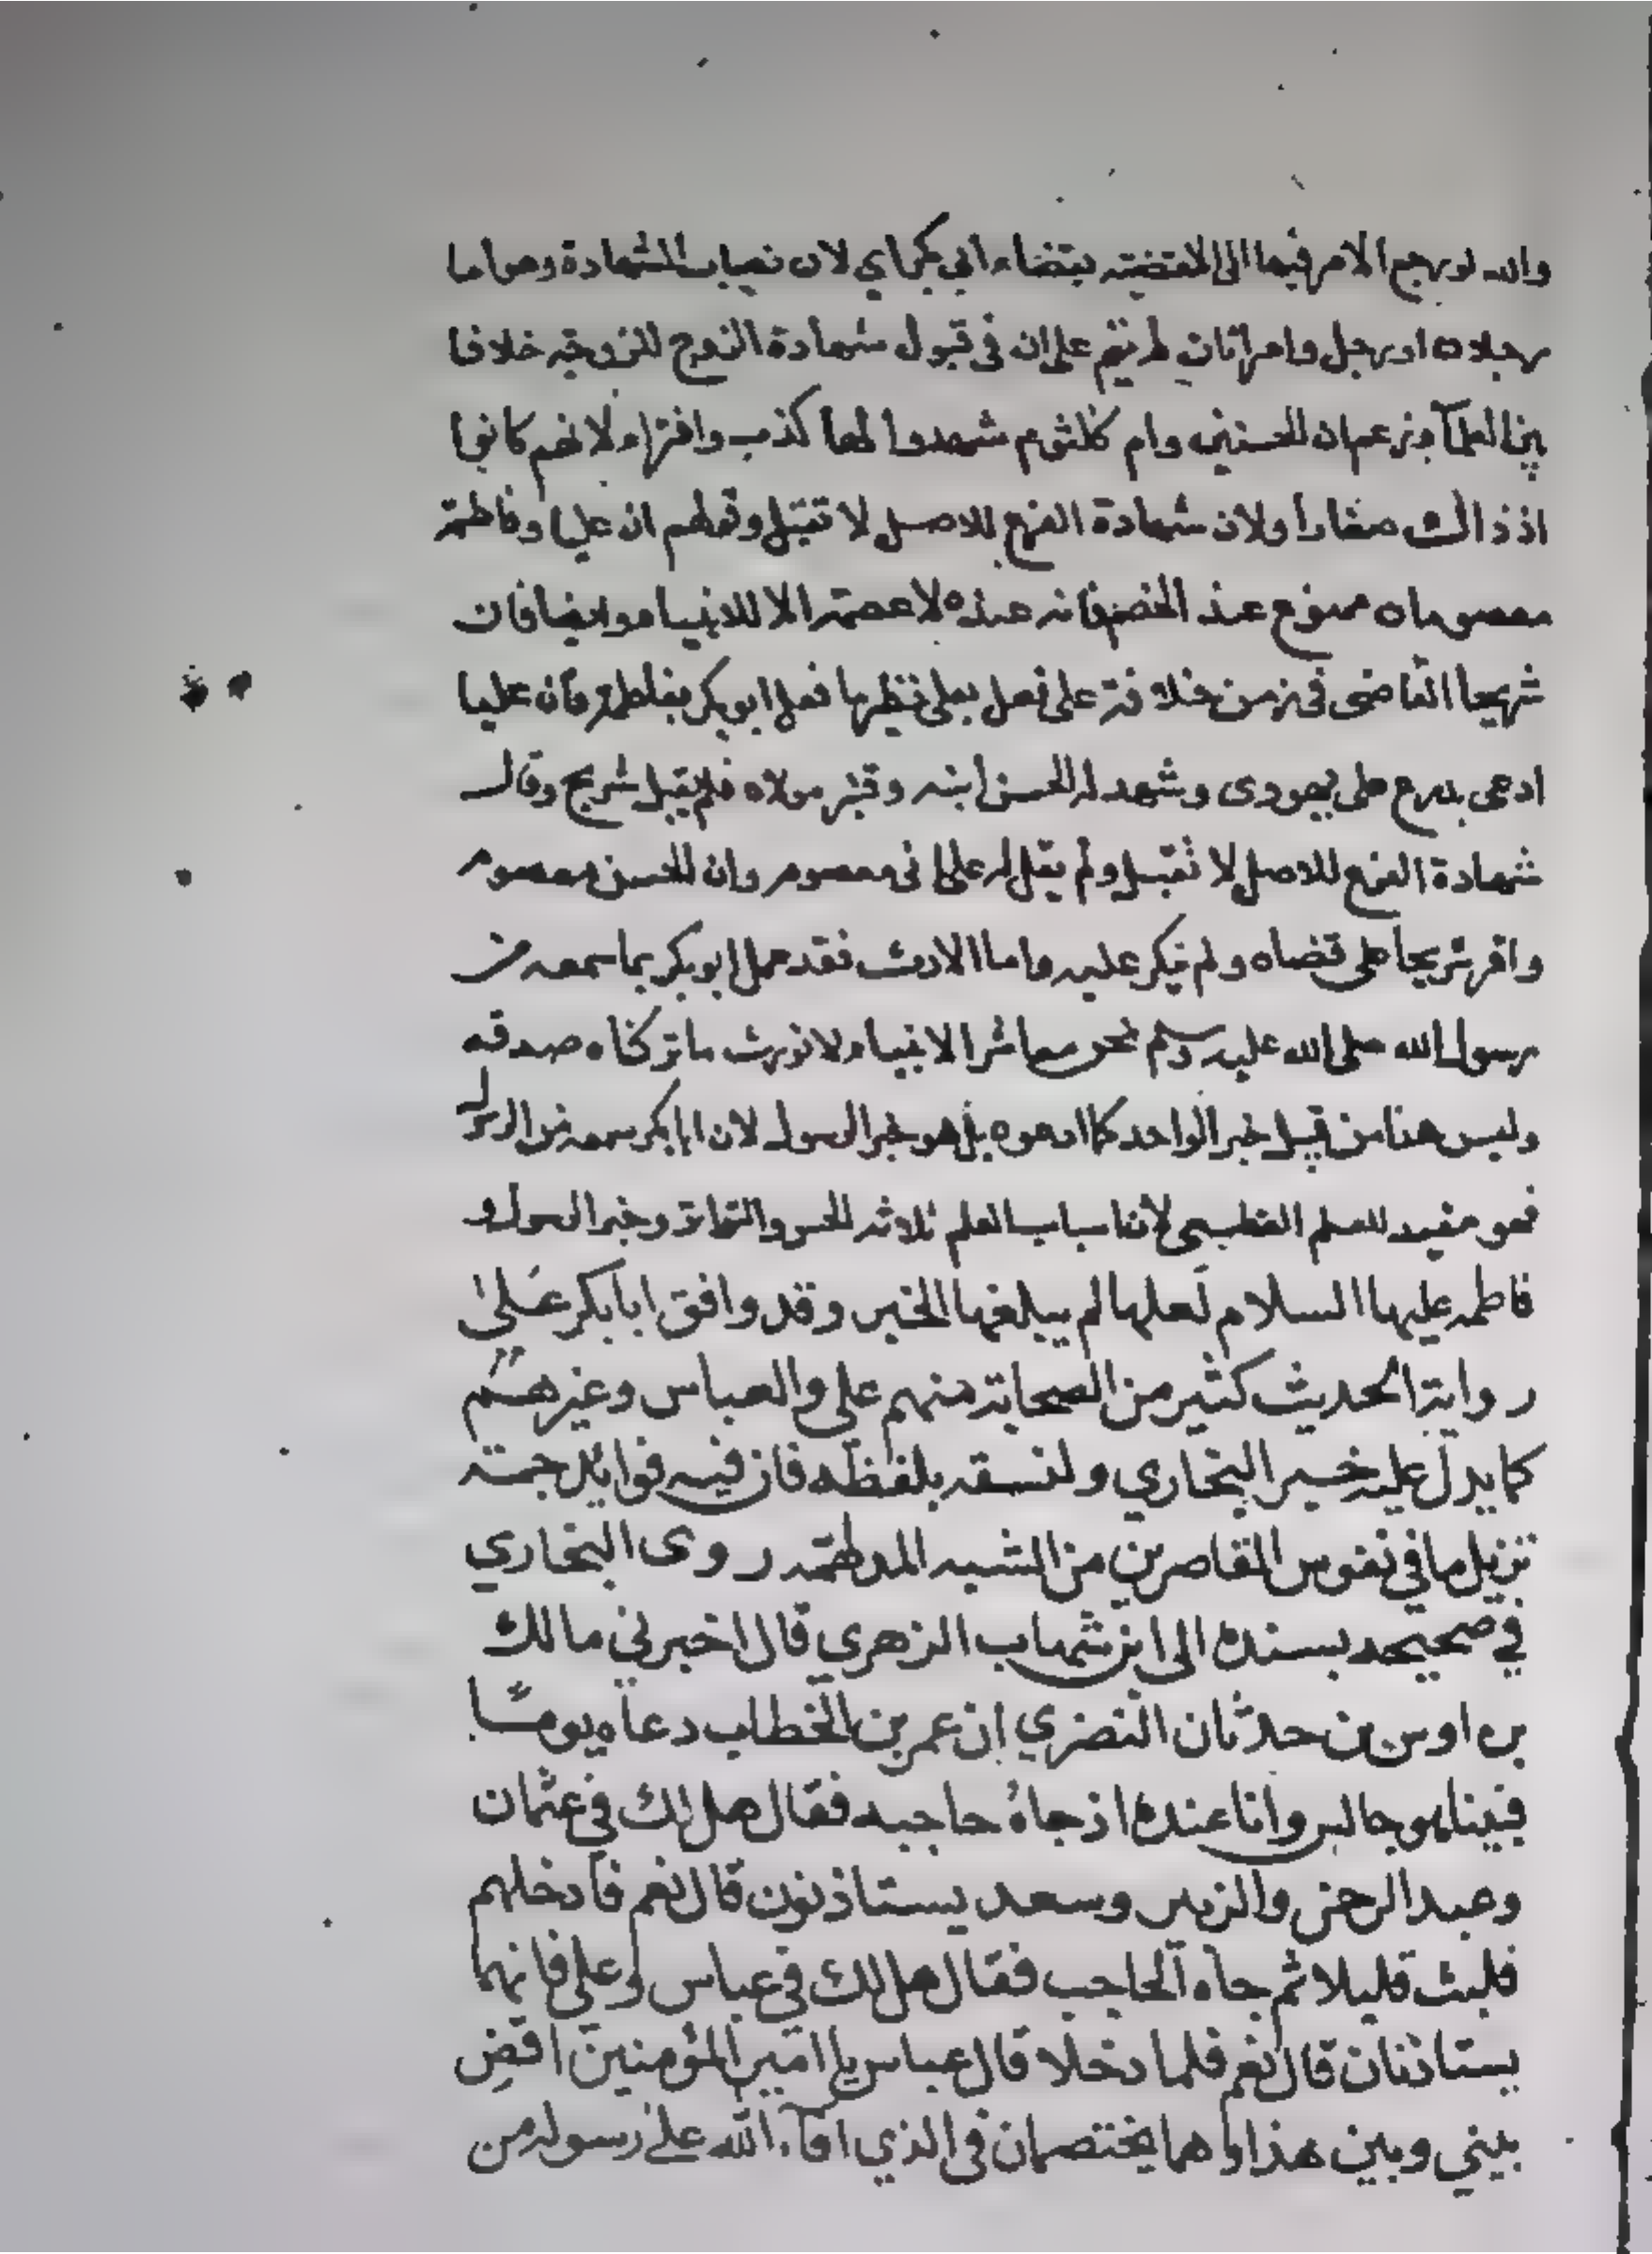 والله لو رجع الامر فيها الى لقضيته بقضاء ابي بكر اي لان نصاب الشهادة وهو اما
رجلان او رجل وامراتان لم يتم على ان في قبول شهادة الزوج للزوجة خلافا
بين العلمآ وزعم ان للحسنين وام كلثوم شهدوا لها كذب وافتراء لانهم كانوا
اذ ذاك صغارا ولان شهادة الفرع للاصل لا تقبل وقولهم ان عليا وفاطمة
معصومان ممنوع عند الخصم فانه عنده لا عصمة الا للانبياء وايضا فان
شريحا القاضى في زمن خلافة على فعل بعلي نظيرما فعل ابو بكر بفاطمة فان عليا
ادعى بدرع على يهودى وشهد له الحسن ابنه وقنبر مولاه فلم يقبل شريح وقال
شهادة الفرع للاصل لا تقبل ولم يقل له على انى معصوم وان الحسن معصوم
واقر شريحا على قضاه ولم ينكر عليه واما الارث فقد عمل ابو بكر بما سمعه من
رسول الله صلى الله عليه وسلم نحن معاشر الانبياء لا نورث ما تركناه صدقه
وليس هنا من قبيل خبر الواحد كما ادعوه بل هو خبر الرسول لان ابا بكر سمعه من الرسول
فهو مفيد للعلم القطعي لان اسباب العلم ثلاثه الحس والتواتر وخبر الرسول و
فاطمه عليها السلام لعلها لم يبلغها الخبر وقد وافق ابا بكر على
رواية الحديث كثير من الصحابة منهم على والعباس وغيرهم
كما يدل عليه خبر البخاري ولنسقه بلفظه فان فيه فوايد جمة
تزيل ما في نفوس القاصرين من الشبه المدلهمة روى البخاري
في صحيحه بسنده الى ابن شهاب الزهري قال اخبرني مالك
بن اوس بن حدثان النضري ان عمر بن الخطاب دعاه يوما
فبينا هو جالس وانا عنده اذ جاهُ حاجبه فقال هل لك في عثمان
وعبد الرحمن والزبير وسعد يستاذنون قال نعم فادخلهم
فلبث قليلا ثم جاه الحاجب فقال هل لك في عباس وعلي فانهما
يستاذنان قال نعم فلما دخلا قال عباس يا امير المؤمنين اقضِ
بيني وبين هذا وهما يختصمان في الذي افآء الله على رسوله من